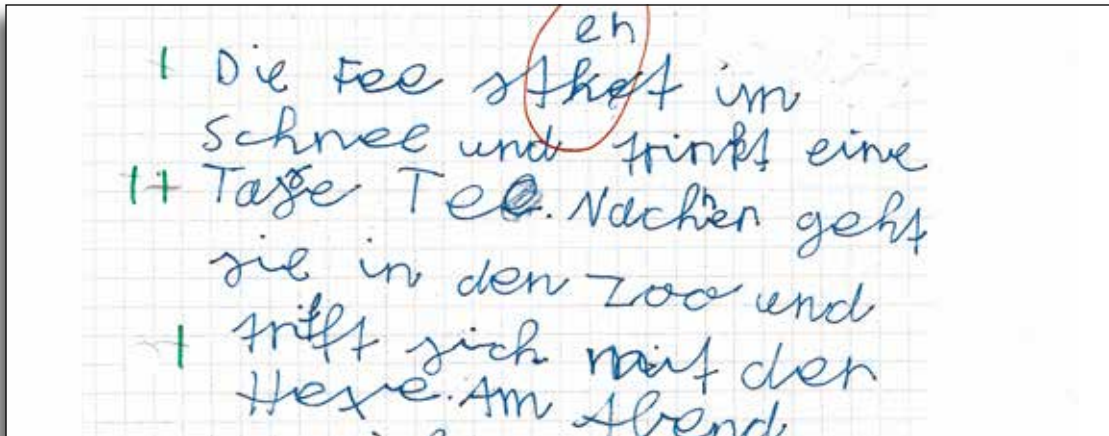 eh
Die Fee sthet im
Schnee und trinkt eine
Tasse Tee. Nachher geht
sie in den Zoo und
trifft sich mit der
Hexe. Am Abend